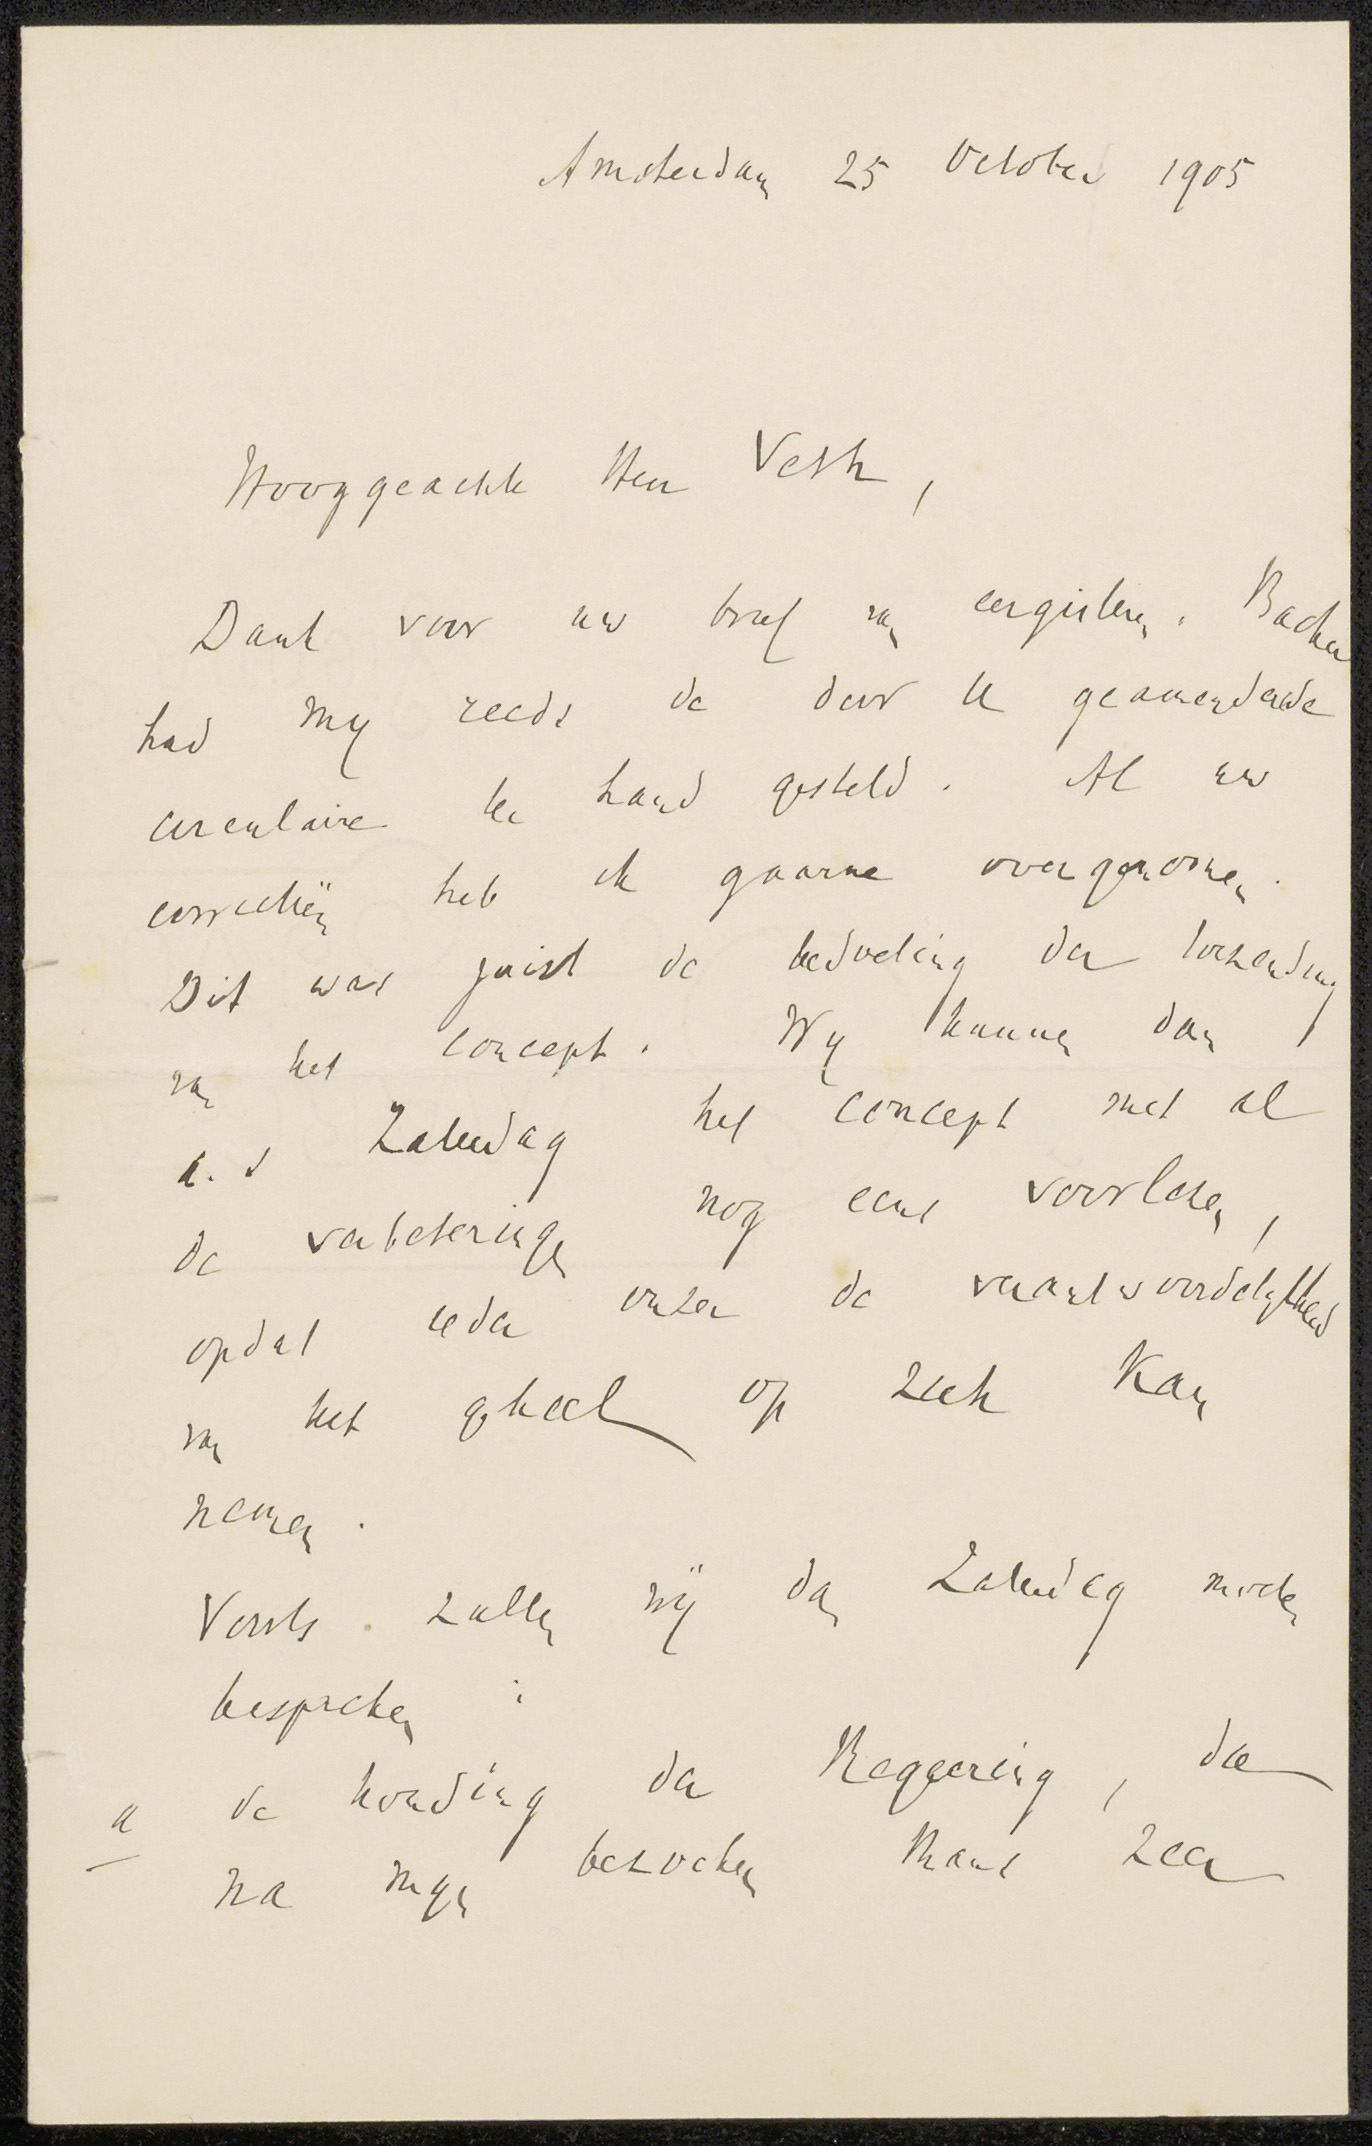 Amsterdam 25 October 1905
Hooggeachte Heer Veth,
Dank voor uw brief van eergisteren. Backer
had my reeds de door U geamendeerde
circulaire ter hand gesteld. Al uw
correctiën heb ik gaarne overgenomen.
Dit was juist de bedoeling der toezending
van het concept. Wy kunnen dan
a.s Zaterdag het concept met al
de verbeteringen nog eens voorlezen,
opdat ieder onzer de verantwoordelykheid
van het geheel op zich kan
nemen.
Voorts zullen wij dan Zaterdag moeten
bespreken:
a de houding der Regeering, die
na myn bezoeken thans zeer